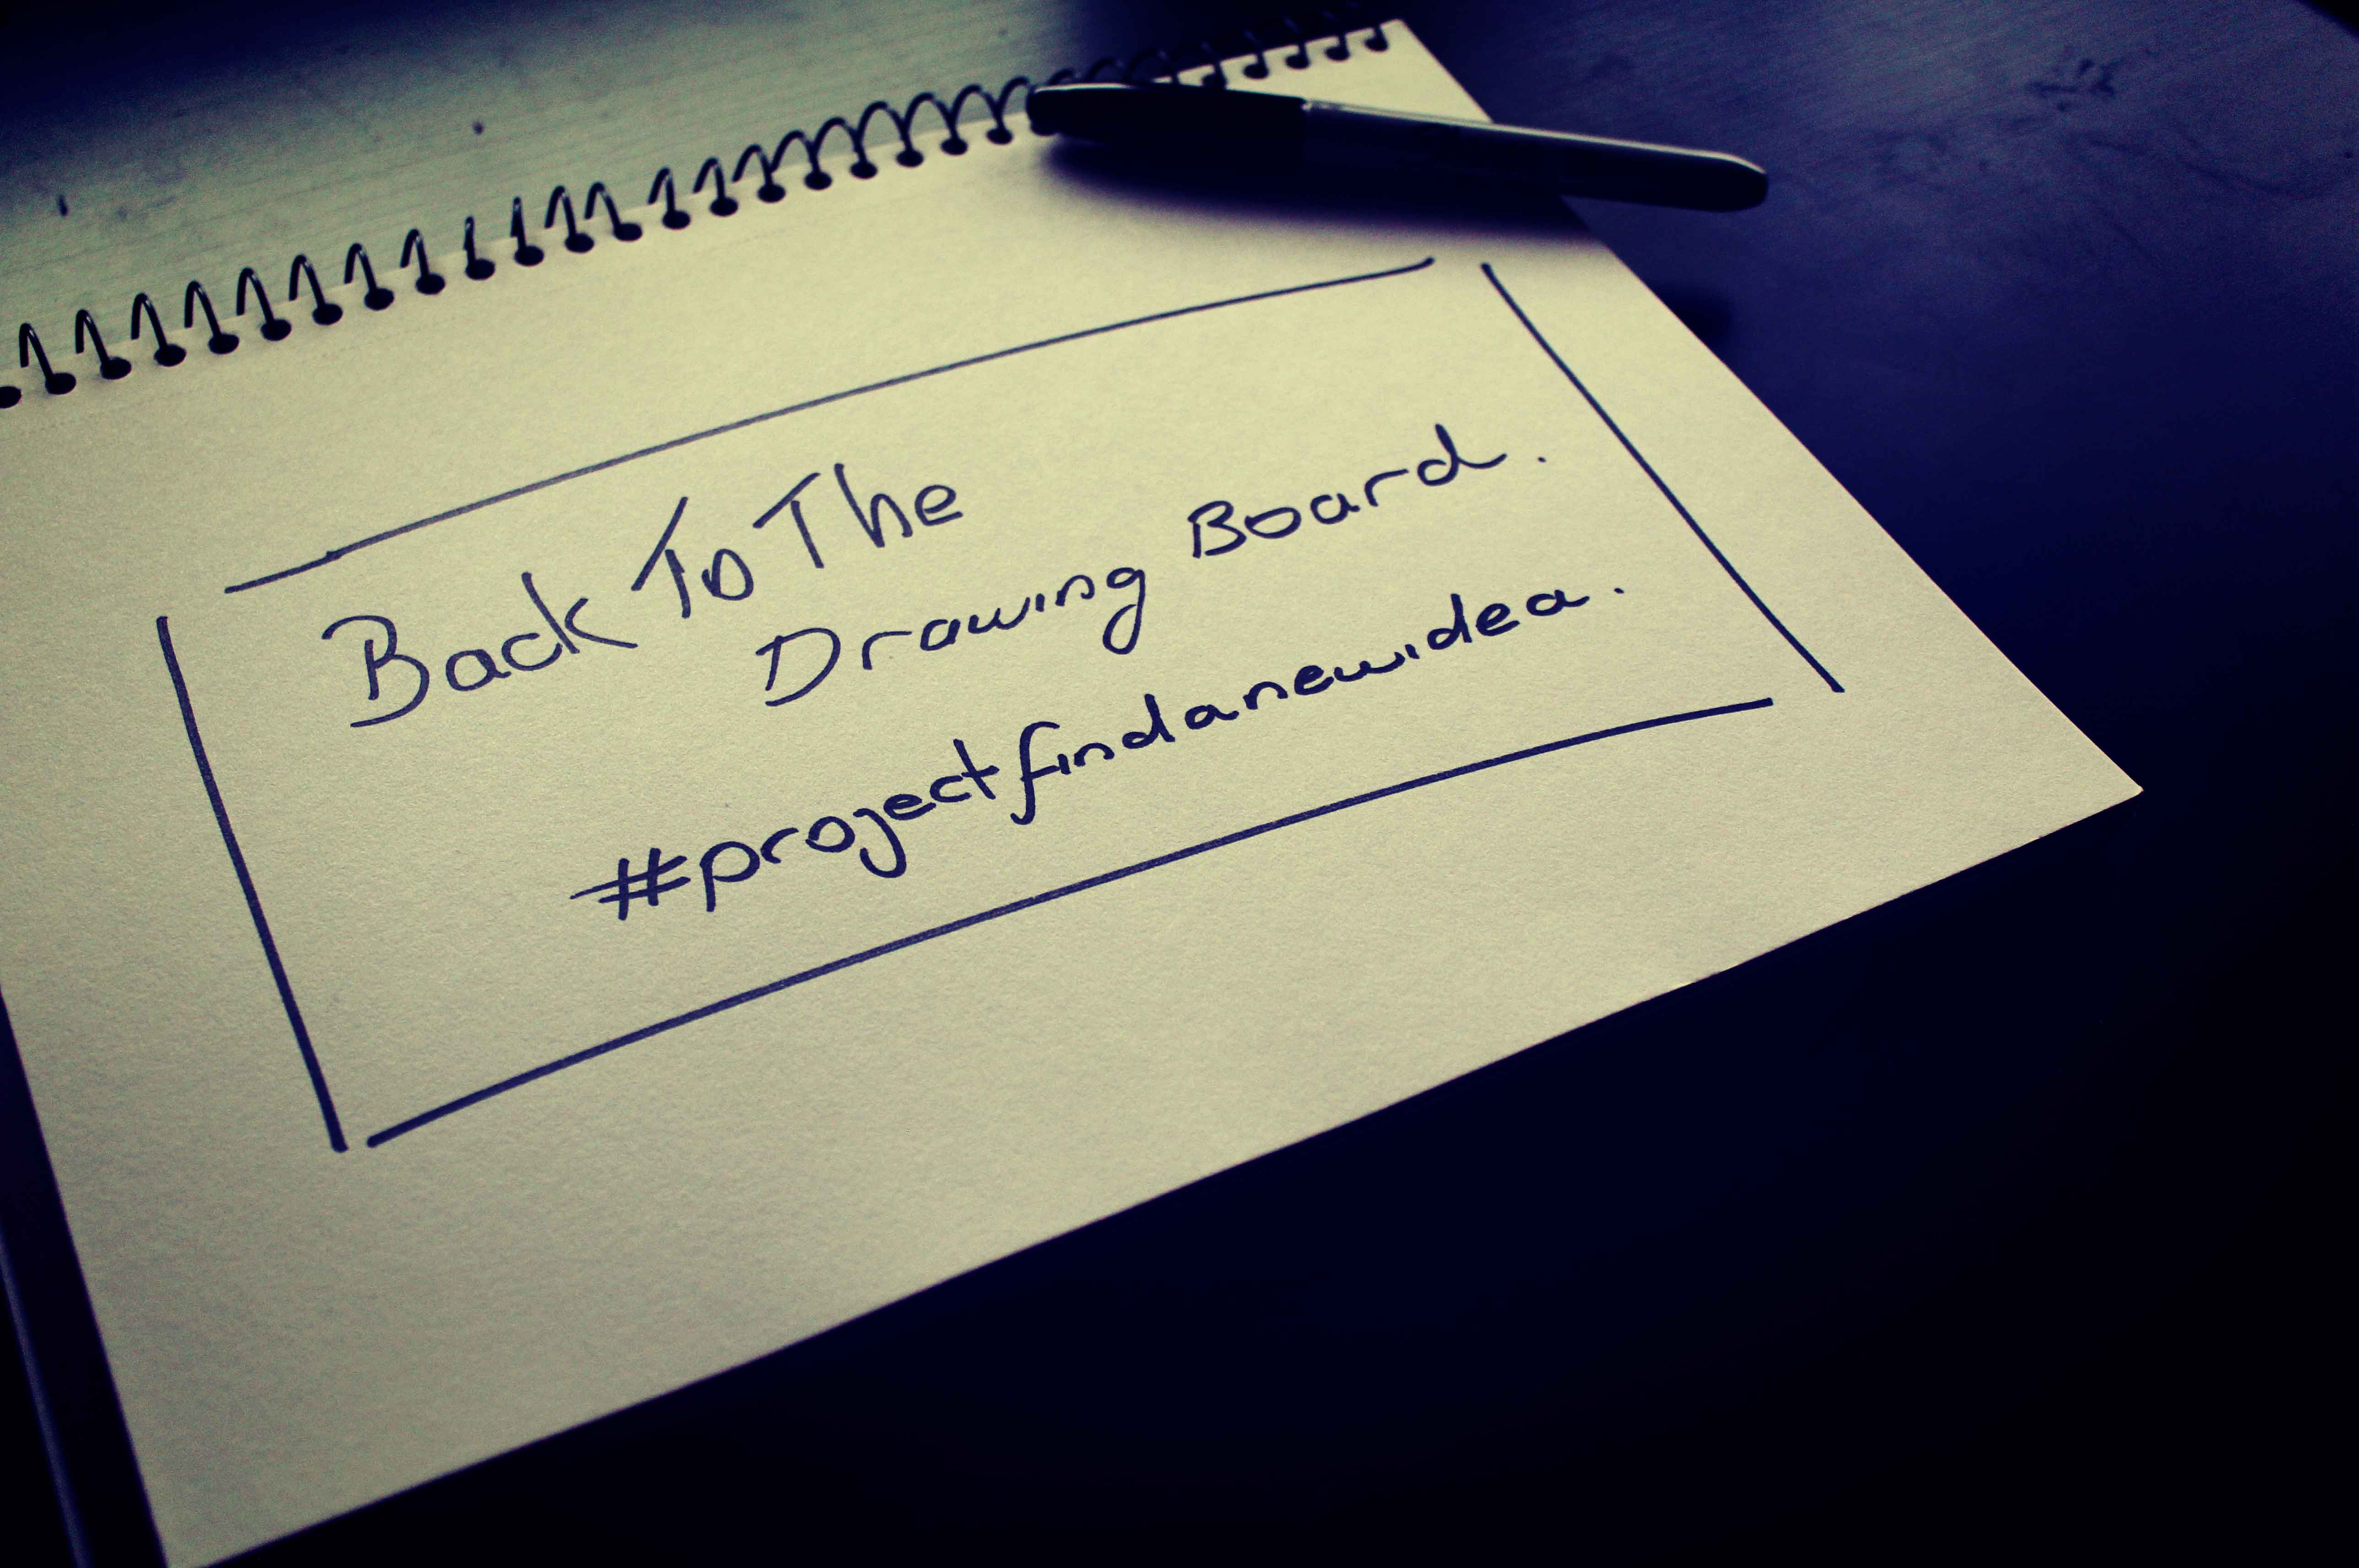 Back To The
Drawing Board.
#projectfindanewidea.